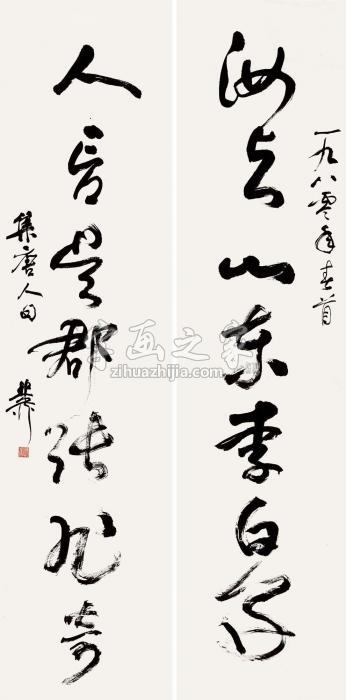 一九八零年春首
汝与山东李白好
人言吴郡张奇
集唐人句
字画之家
zihuazhijia.com